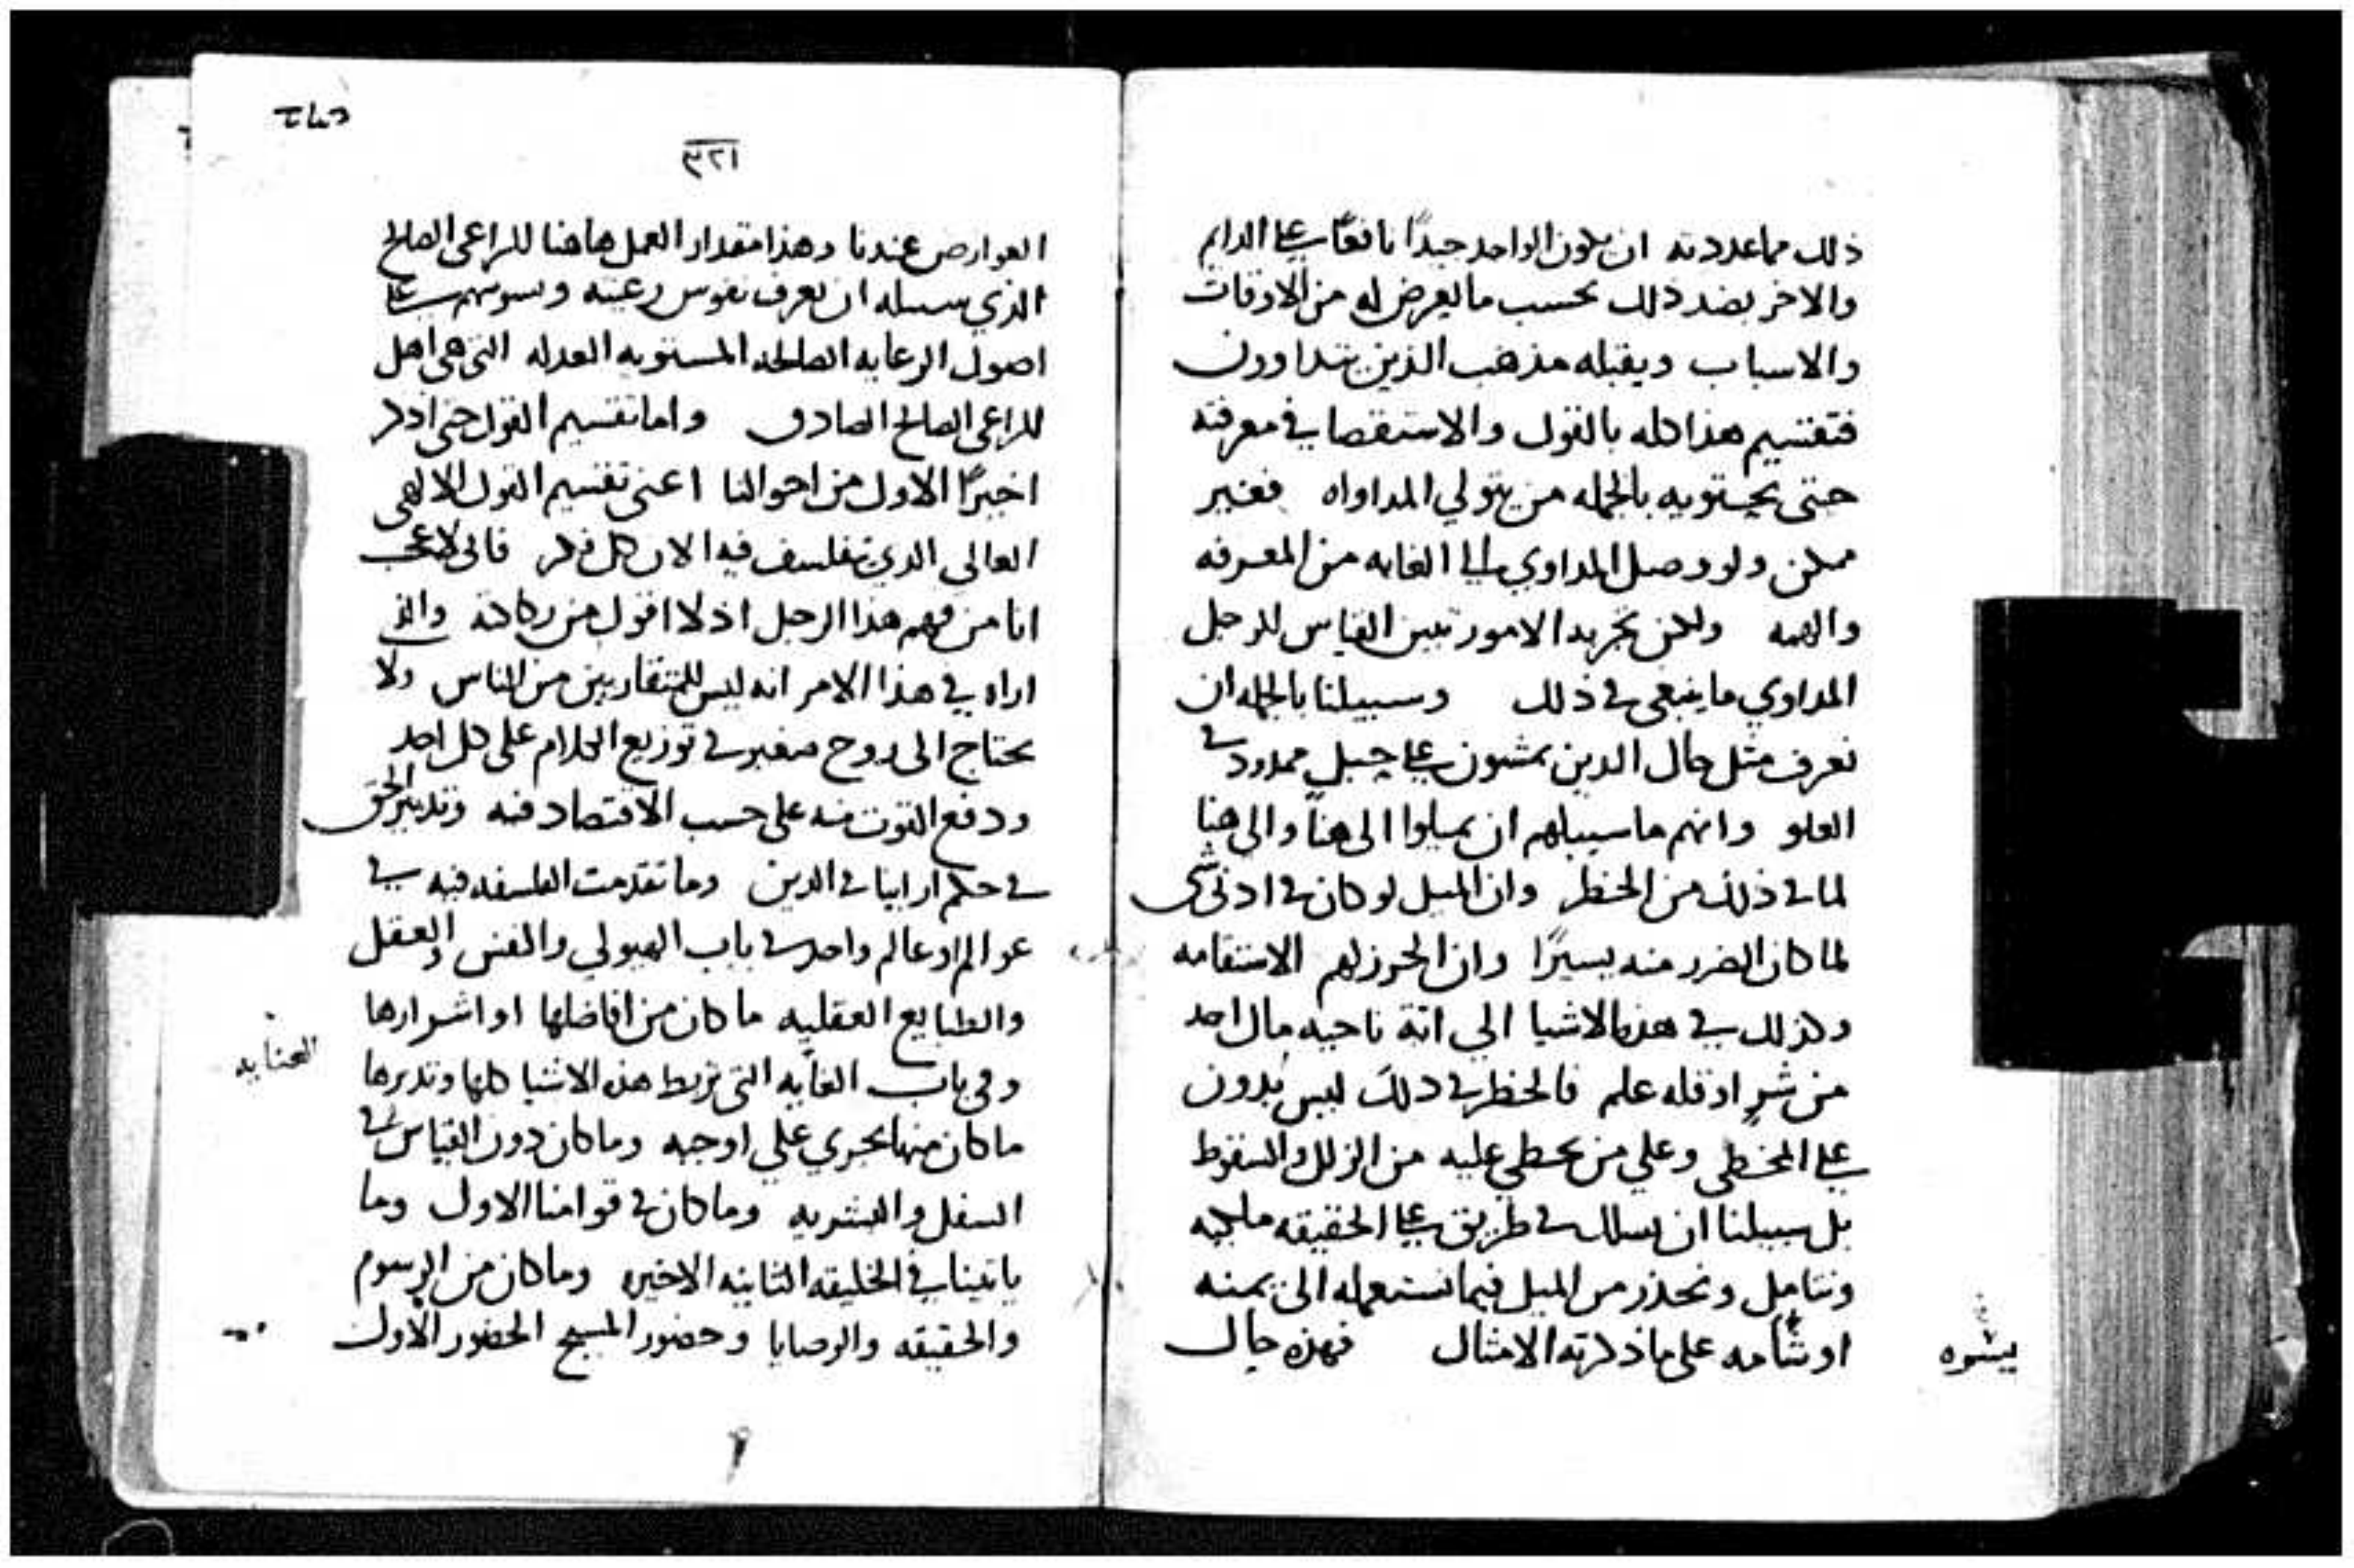 ذلك مما عددته ان يكون الواحد جيدًا نافعًا على الدايم
والاخر بضد ذلك بحسب ما يعرض له من الاوقات
والاسباب ويقبله مذهب الذين يتداوون
فتقسيم هذا كله بالقول والاستقصا في معرفته
حتى يحتويه بالجمله من يتولي المداواه فغير
ممكن ولو وصل المداوي الى الغايه من المعرفه
والهمه ولكن تجربه الامور تبين القياس للرجل
المداوي ما ينبغي في ذلك وسبيلنا بالجمله ان
نعرف مثل حال الذين يمشون على حبل ممدود في
العلو وانهم ما سبيلهم ان يميلوا الى هنا والى هنا
لما في ذلك من الخطر وان الميل لو كان في ادنى شي
لما كان الضرر منه يسيرًا وان الحرز لهم الاستقامه
وكذلك في هذه الاشيا الي اية ناحيه مال احد
من شر او قله علم فالخطر في ذلك ليس بدون
على المخطي وعلي من يخطي عليه من الزلل والسقوط
بل سبيلنا ان نسلك في طريق على الحقيقه ملجيه
ونتامل ونحذر من الميل فيما نستعمله الى يمنه
او شامه على ما ذكرته الامثال فهذه حال
يشوه
٣٢١
العوارض عندنا وهذا مقدار العمل هاهنا للراعي الصالح
الذي سبيله ان يعرف نفوس رعيته ويسوسهم على
اصول الرعايه الصالحه المستويه العدله التي هي اهل
للراعي الصالح الصادق واما تقسيم القول حتى اذكر
اخيرًا الاول من احوالنا اعني تقسيم القول الالهي
العالي الذي يتفلسف فيه الان كل فكر فاني لاعجب
انا من فهم هذا الرجل اذ لا اقول من ركاكته والذي
اراه في هذا الامر انه ليس للمتقاربين من الناس ولا
يحتاج الى روح صغيره في توزيع الكلام على كل احد
ودفع القوت منه على حسب الاقتصاد فيه وتدبير الحق
في حكم اراينا في الدين وما تقدمت الفلسفه فيه في
عوالم او عالم واحد في باب الهيولي والنفس والعقل
والطبايع العقليه ما كان من افاضلها او اشرارها
وفي باب الغايه التي تربط هذه الاشيا كلها وتدبرها
العنايه
ما كان منها يجري علي اوجبه وما كان دون القياس في
السفل والبشريه وما كان في قوامنا الاول وما
ياتينا في الخليقه الثانيه الاخيره وما كان من الرسوم
والحقيقه والوصايا وحضور المسيح الحضور الاول